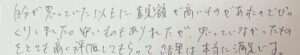 自分が思っていた以上に査定額が高いものであったのでびっ
くりしました。安いものもありましたが、思っていなかったもの
をとても高く評価してもらって結果は本当に満足です。